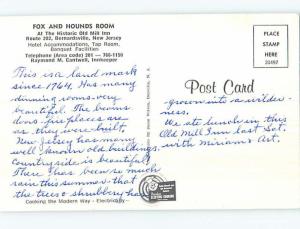 FOX AND HOUNDS ROOM
At The Historic Old Mill Inn
Route 202, Bernardsville, New Jersey
Hotel Accommodations, Tap Room,
Banquet Facilities
Telephone (Area code) 201 — 766-1150
Raymond M. Cantwell, Innkeeper
This is a land mark
since 1764. Has many
dinning rooms-very
beautiful. The beams
and fireplaces are
as they were built.
New Jersey has many
well known old buildings.
Countryside is beautiful
There has been so much
rain this summer-that
the trees & shrubbery has
Cooking the Modern Way - Electrically
PLACE
STAMP
HERE
Post Card
grown into a wilder-
ness.
We ate lunch in this
Old Mill Inn last Sat.
with Miriam & Art.